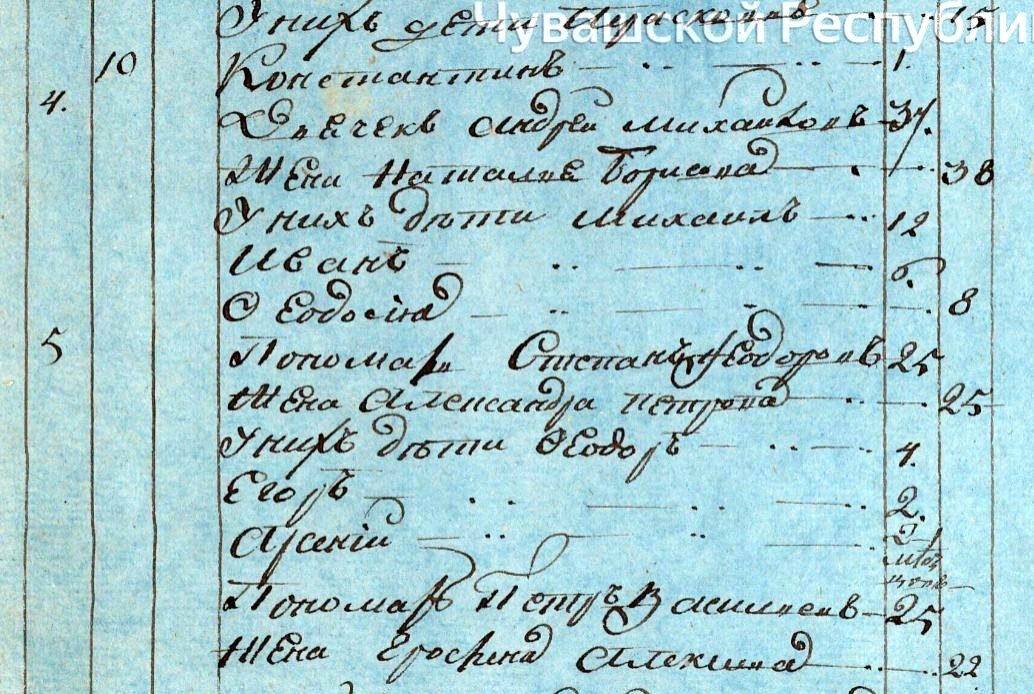 У нихъ дети Параскева 15
Чувашской Республики
10 Константинъ 1.
4. Дьечекъ Андрей Михайловъ 37.
Жена Наталья Борисова 38
У нихъ дѣти Михаилъ 12
Иванъ 6.
Ѳеодосiя 8
5 Пономарь Степанъ Ѳеодоровъ 25
Жена Александра Петрова 25
У нихъ дѣти Ѳеодоръ 4.
Егоръ 2.
Арсенiй
Пономарь Петръ Васильевъ 25
Жена Ерофена Алексеева 22